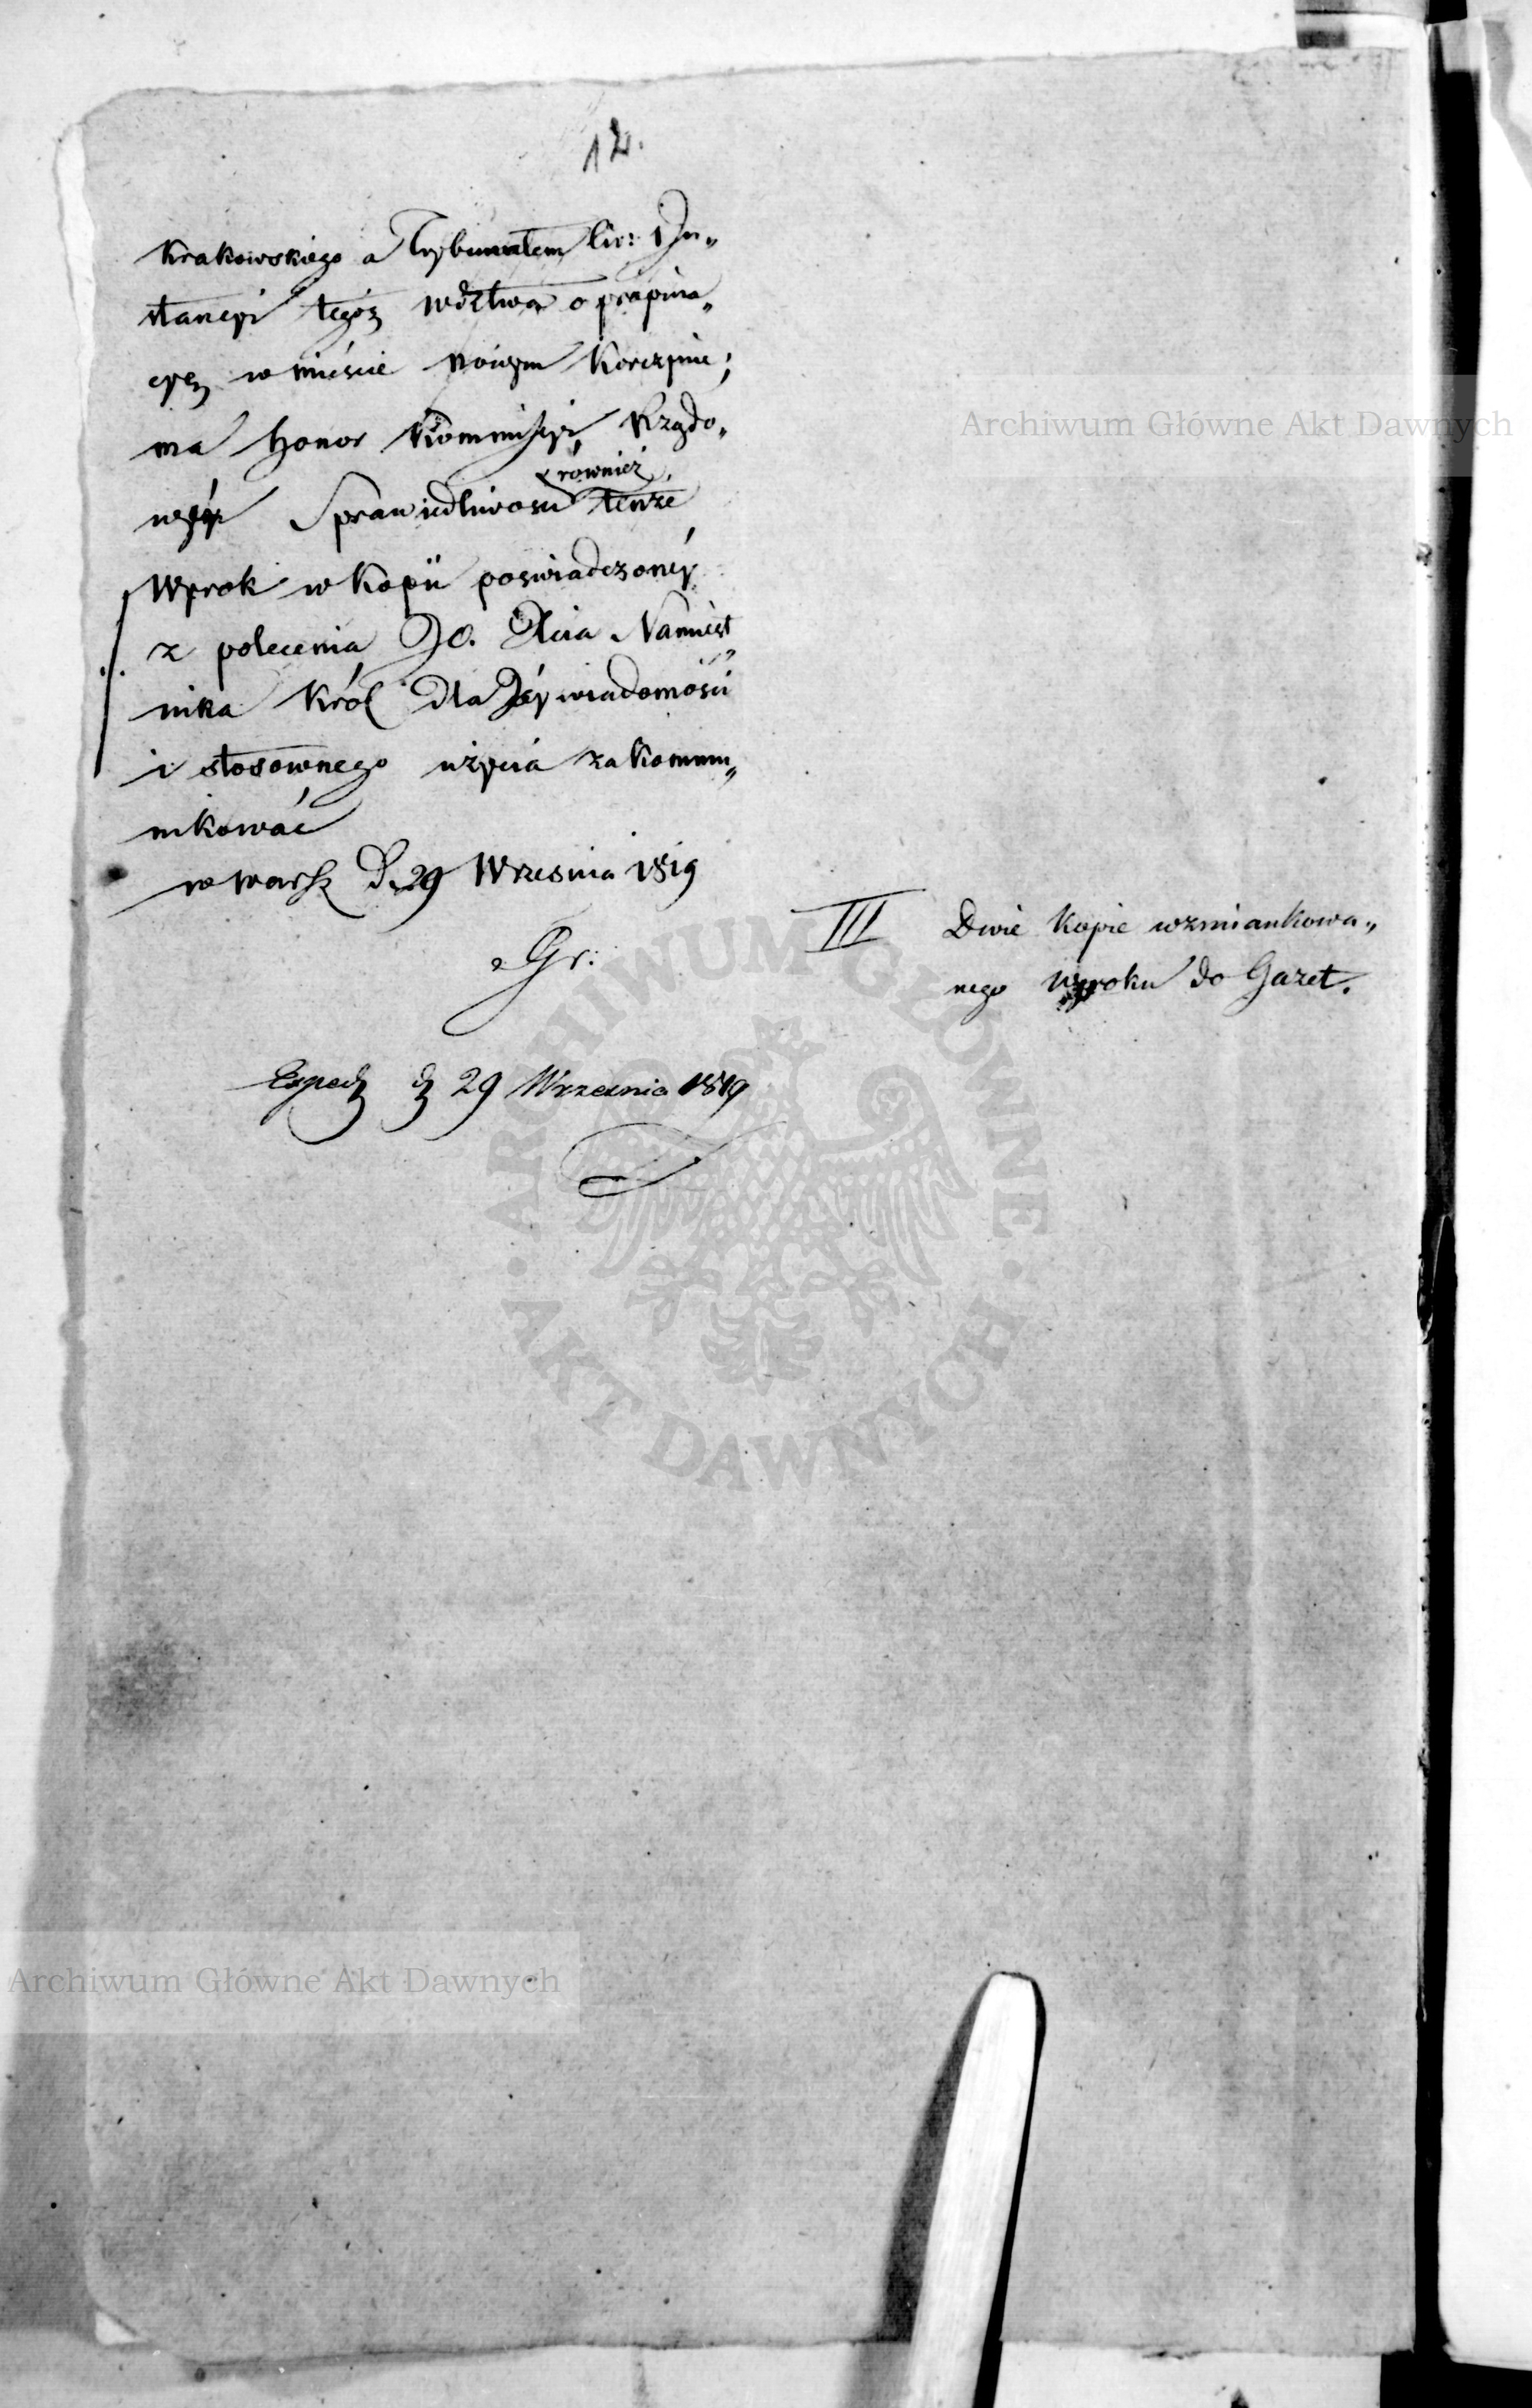 12.
Krakowskiego a Trybunałem Civ: 1 In„
stancyi tegoż wdztwa o propina„
cyę w mieście Nowym Korczynie;
ma honor Kommissyi Rządo„
wéy Sprawiedliwosci również tenże
Wyrok w Kopii poswiadczonéy
z polecenia JO. Xcia Namiest„
nika Król dla Jéy wiadomości
i stosownego użycia zakommu„
nikować
w Warsz D. 29 Wrzesnia 1819
Gr:
III Dwie kopie wzmiankowa„
nego Wyroku do Gazet.
Exped d 29 Września 1819
Archiwum Główne Akt Dawnych
ARCHIWUM GŁÓWNE
AKT DAWNYCH
Archiwum Główne Akt Dawnych